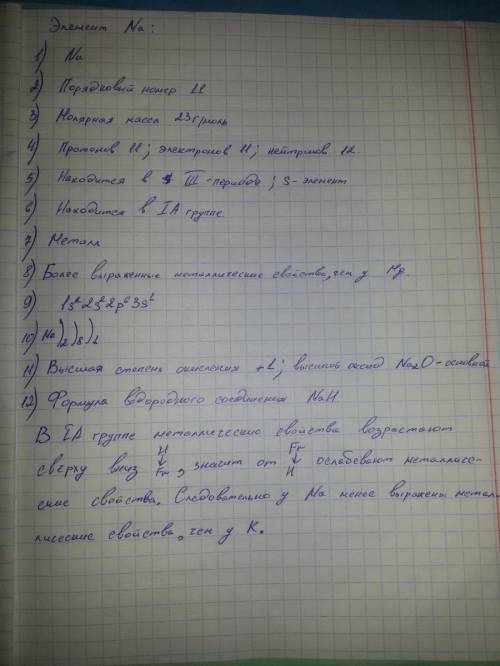 Элемент Na:
1) Na
2) Порядковый номер 11
3) Молярная масса 23 г/моль
4) Протонов 11; электронов 11; нейтронов 12.
5) Находится в III-периоде; S-элемент
6) Находится в IA группе.
7) Металл
8) Более выраженные металлические свойства, чем у Mg.
9) 1s² 2s² 2p⁶ 3s¹
10) Na )₂ )₈ )₁
11) Высшая степень окисления +1; высший оксид Na₂O - основной
12) Формула водородного соединения NaH.
В IA группе металлические свойства возрастают
сверху вниз H↓Fr, значит от Fr↓H ослабевают металличе-
ские свойства. Следовательно у Na менее выражены метал-
лические свойства, чем у K.